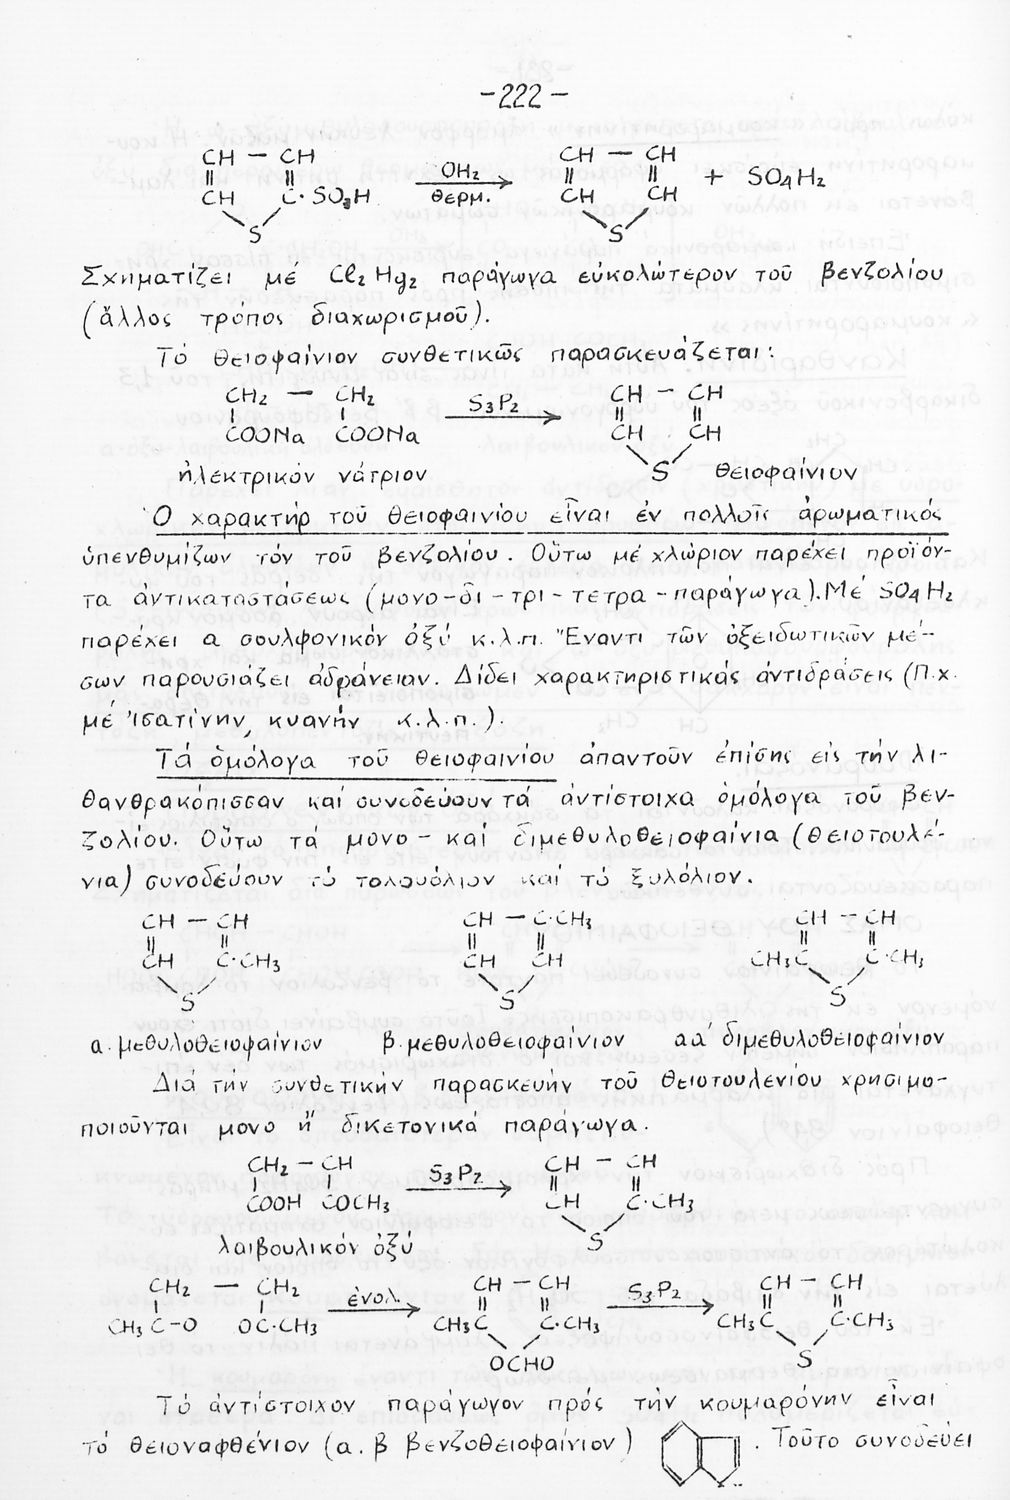 -222-
CH — CH CH — CH
|| || OH2 || ||
CH C·SO3H θερμ. CH CH + SO4H2
S S
Σχηματίζει μέ Cl2Hg2 παράγωγα εὐκολώτερον τοῦ βενζολίου
(ἄλλος τρόπος διαχωρισμοῦ).
Τό θειοφαίνιον συνθετικῶς παρασκευάζεται:
CH2 — CH2 S3P2 CH — CH
COONa COONa CH CH
S
ἠλεκτρικόν νάτριον θειοφαίνιον
Ὁ χαρακτήρ τοῦ θειοφαινίου εἶναι ἐν πολλοῖς ἀρωματικός
ὑπενθυμίζων τόν τοῦ βενζολίου. Οὕτω μέ χλώριον παρέχει προϊόν-
τα ἀντικαταστάσεως (μονο-δι-τρι-τετρα-παράγωγα). Μέ SO4H2
παρέχει α σουλφονικόν ὀξύ κ.λ.π. Ἔναντι τῶν ὀξειδωτικῶν μέ-
σων παρουσιάζει ἀδράνειαν. Δίδει χαρακτηριστικάς ἀντιδράσεις (Π.χ.
μέ ἰσατίνην, κυανήν κ.λ.π.).
Τά ὁμόλογα τοῦ θειοφαινίου ἀπαντοῦν ἐπίσης εἰς τήν λι-
θανθρακόπισσαν καί συνοδεύουν τά ἀντίστοιχα ὁμόλογα τοῦ βεν-
ζολίου. Οὕτω τά μονο- καί διμεθυλοθειοφαίνια (θειοτουλέ-
νια) συνοδεύουν τό τολουόλιον καί τό ξυλόλιον.
CH — CH CH — C·CH3 CH — CH
CH C·CH3 CH CH CH3C C·CH3
S S S
α. μεθυλοθειοφαίνιον β. μεθυλοθειοφαίνιον αα' διμεθυλοθειοφαίνιον
Διά τήν συνθετικήν παρασκευήν τοῦ θειοτουλενίου χρησιμο-
ποιοῦνται μονο ἤ δικετονικά παράγωγα.
CH2 — CH S3P2 CH — CH
COOH COCH3 CH C·CH3
S
λαιβουλικόν ὀξύ
CH2 — CH2 ἐνολ. CH — CH S3P2 CH — CH
CH3C-O OC·CH3 CH3C C·CH3 CH3C C·CH3
OCHO S
Τό ἀντίστοιχον παράγωγον πρός τήν κουμαρόνην εἶναι
τό θειοναφθένιον (α.β βενζοθειοφαίνιον) . Τοῦτο συνοδεύει